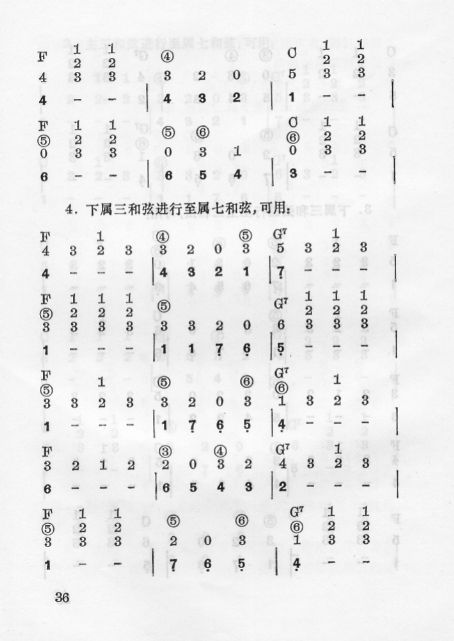 F 1 1 ④ C 1 1
2 2 2 2
4 3 3 3 2 0 5 3 3
4 – – 4 3 2 1 – –
F 1 1 C 1 1
⑤ 2 2 ⑤ ⑥ ⑥ 2 2
0 3 3 0 3 1 0 3 3
6 – – 6 5 4 3 – –
4. 下属三和弦进行至属七和弦,可用:
F 1 ④ ⑤ G⁷ 1
4 3 2 3 3 2 0 3 5 3 2 3
4 – – – 4 3 2 1 7 – – –
F 1 1 1 G⁷ 1 1 1
⑤ 2 2 2 ⑤ 2 2 2
3 3 3 3 3 3 2 0 6 3 3 3
1 – – – 1 1 7 6 5 – – –
F G⁷
⑤ 1 ⑤ ⑥ ⑥ 1
3 3 2 3 3 2 0 3 1 3 2 3
1 – – – 1 7 6 5 4 – – –
F ③ ④ G⁷ 1
3 2 1 2 2 0 3 2 4 3 2 3
6 – – – 6 5 4 3 2 – – –
F 1 1 G⁷ 1 1
⑤ 2 2 ⑤ ⑥ ⑥ 2 2
3 3 3 2 0 3 1 3 3
1 – – 7 6 5 4 – –
36